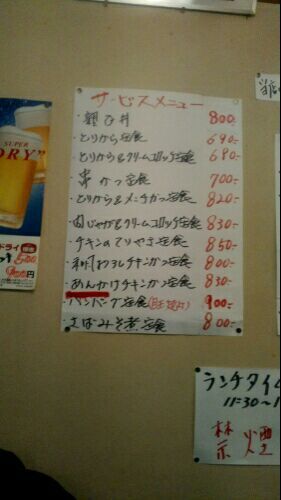 サービスメニュー
・親子丼 800-
・とりから定食 690-
・とりから&クリームコロッケ定食 680-
・串かつ定食 700-
・とりから&メンチかつ定食 820-
・肉じゃが&クリームコロッケ定食 830-
・チキンのてりやき定食 850-
・和風おろしチキンかつ定食 800-
・あんかけチキンかつ定食 830-
・ハンバーグ定食 900-
・さばみそ煮定食 800-
SUPER
DRY"
ドライ
500
900円
ランチタイム
11:30~1
禁煙